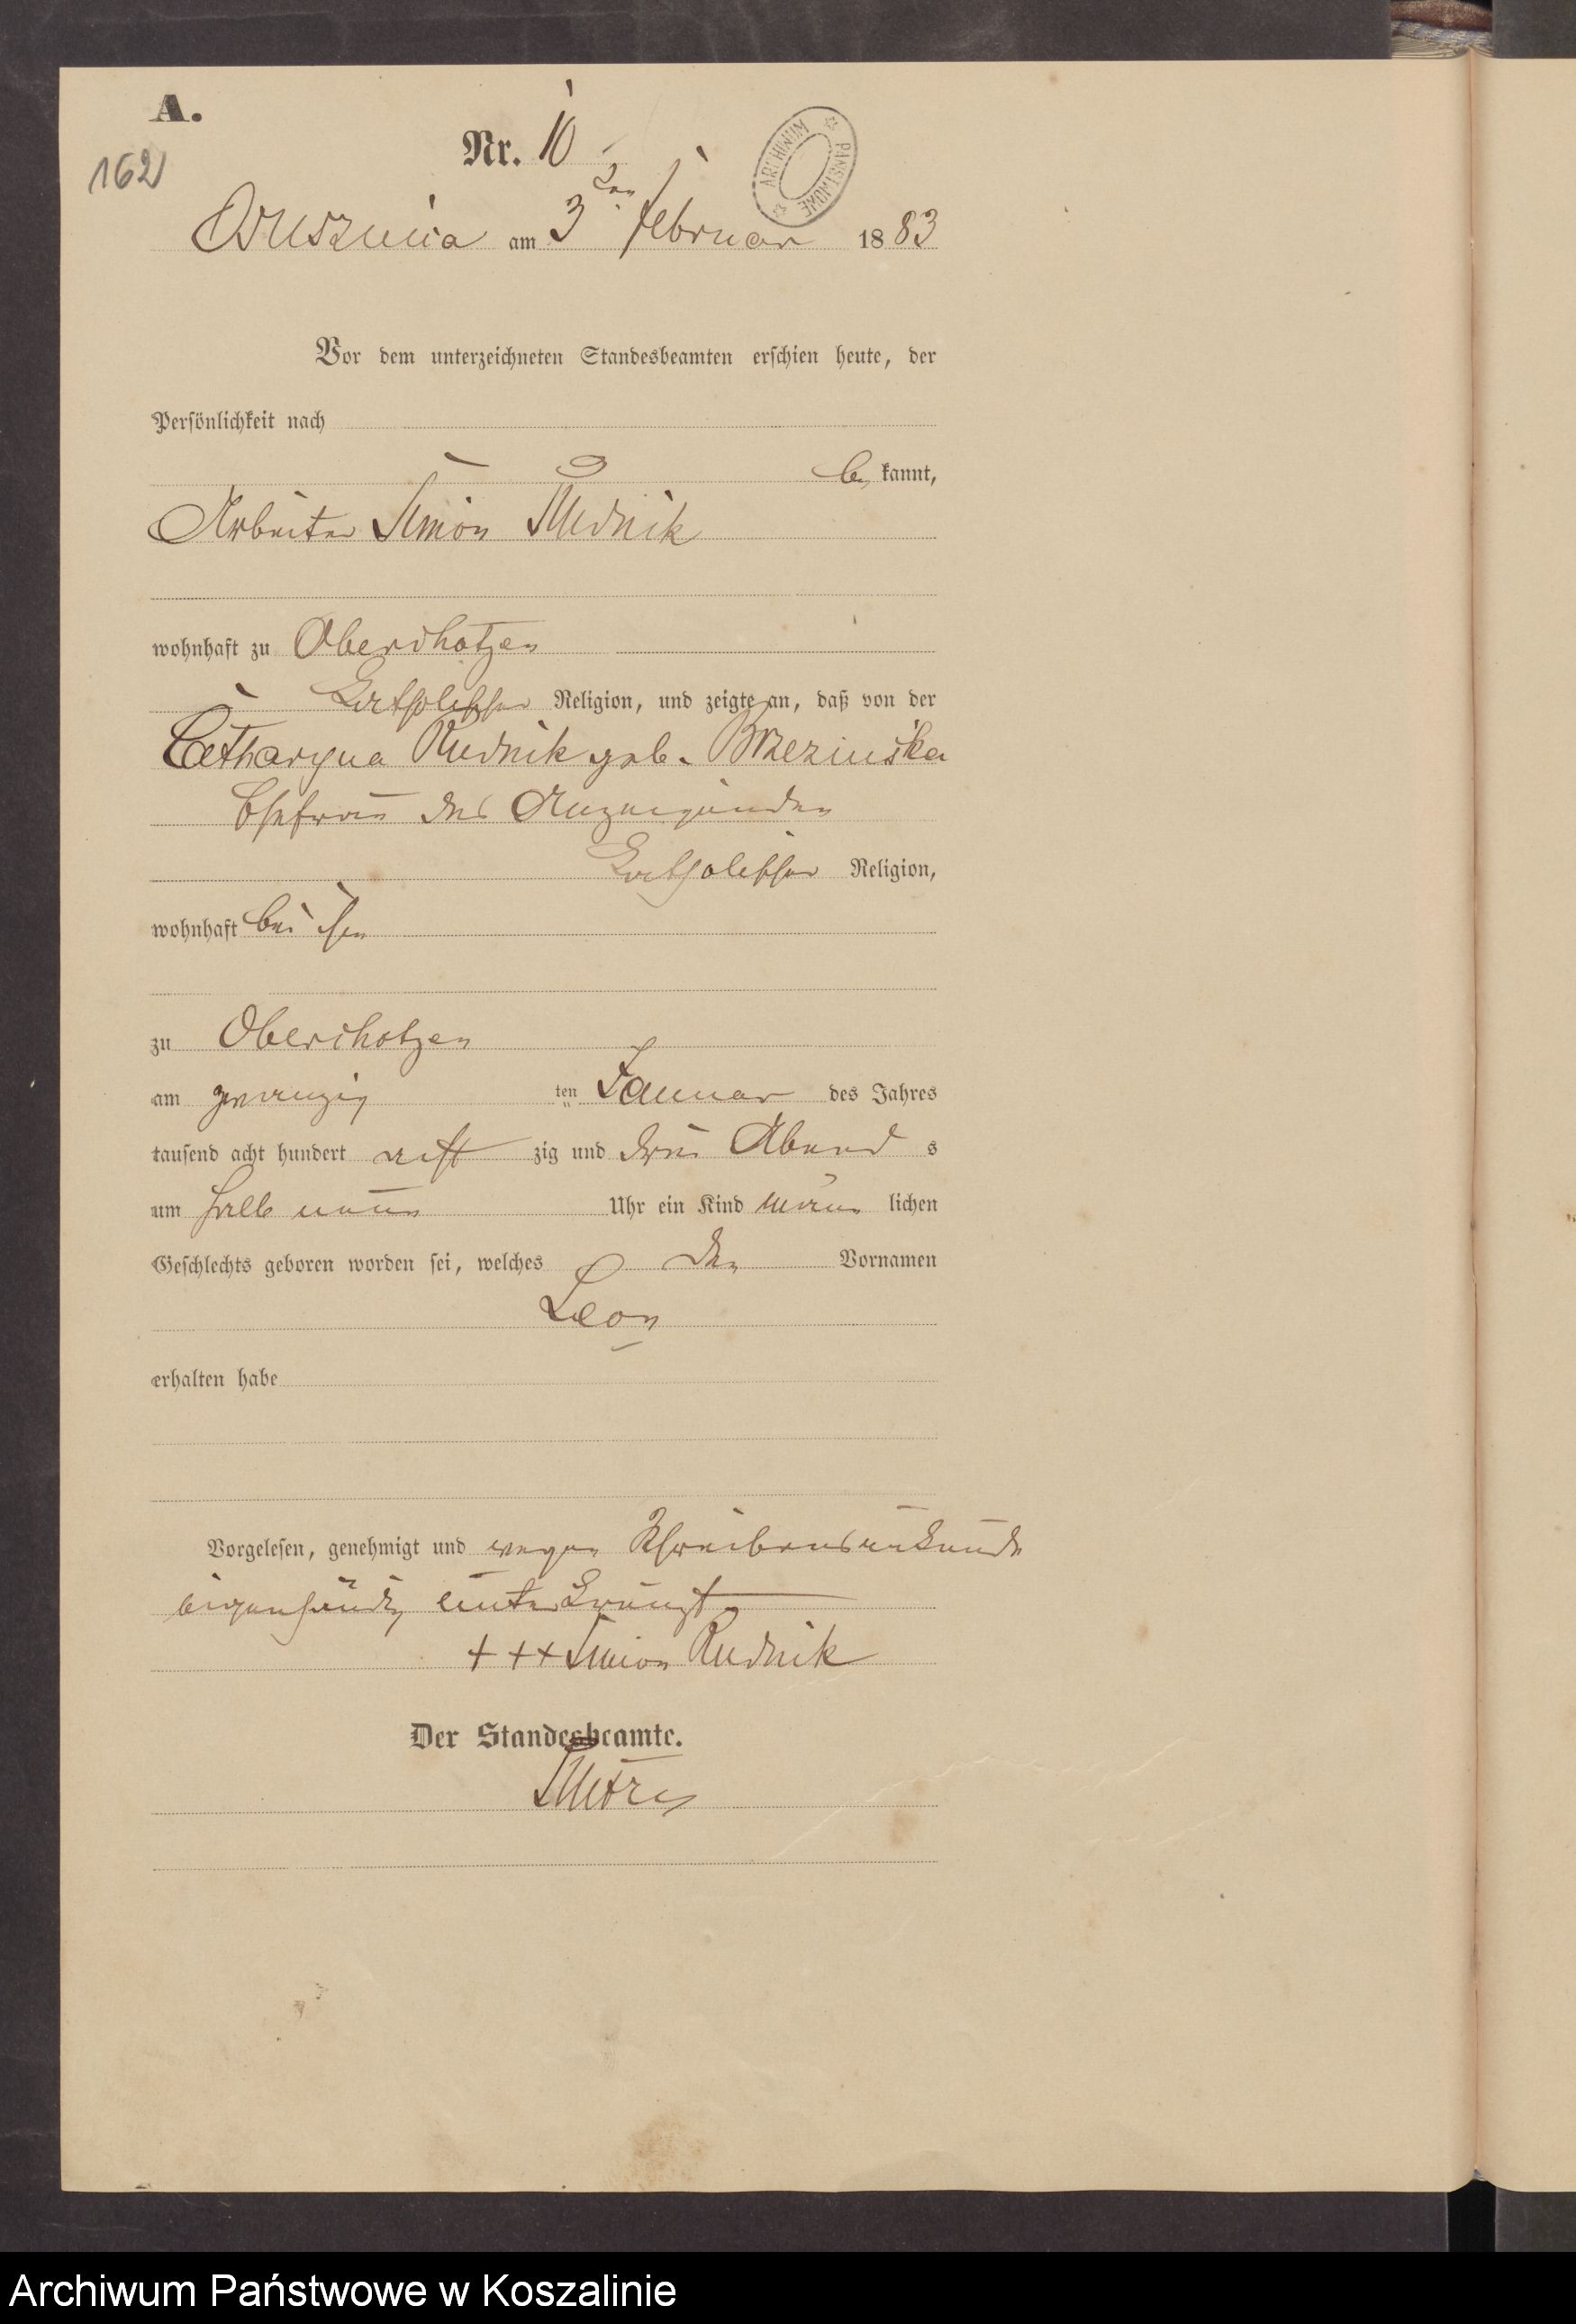 A.
Nr. 10
162
ARCHIWUM PAŃSTWOWE
Ossuszniça am 3ten Februar 1883
Vor dem unterzeichneten Standesbeamten erschien heute, der
Persönlichkeit nach
be kannt,
Arbeiter Simon Rudnik
wohnhaft zu Oberchotzen
katholischer Religion, und zeigte an, daß von der
Catharyna Rudnik geb. Brzezinska
Ehefrau des Anzeigenden
katholischer Religion,
wohnhaft bei ihm
zu Oberchotzen
am zwanzig ten Januar des Jahres
tausend acht hundert acht zig und drei Abend s
um halb neun Uhr ein Kind männ lichen
Geschlechts geboren worden sei, welches den Vornamen
Leon
erhalten habe
Vorgelesen, genehmigt und wegen Schreibensunkunde
eigenhändig unterkreuzt
+++ Simon Rudnik
Der Standesbeamte.
Archiwum Państwowe w Koszalinie